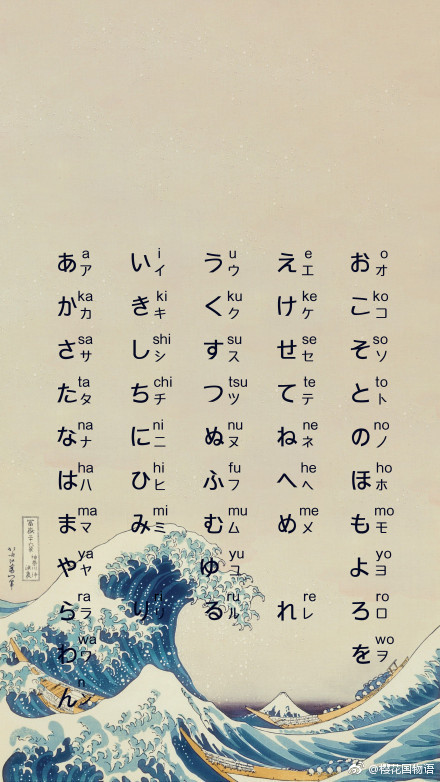 あ a ア い i イ う u ウ え e エ お o オ
か ka カ き ki キ く ku ク け ke ケ こ ko コ
さ sa サ し shi シ す su ス せ se セ そ so ソ
た ta タ ち chi チ つ tsu ツ て te テ と to ト
な na ナ に ni ニ ぬ nu ヌ ね ne ネ の no ノ
は ha ハ ひ hi ヒ ふ fu フ へ he ヘ ほ ho ホ
ま ma マ み mi ミ む mu ム め me メ も mo モ
や ya ヤ ゆ yu ユ よ yo ヨ
ら ra ラ り ri リ る ru ル れ re レ ろ ro ロ
わ wa ワ を wo ヲ
ん n ン
@樱花国物语